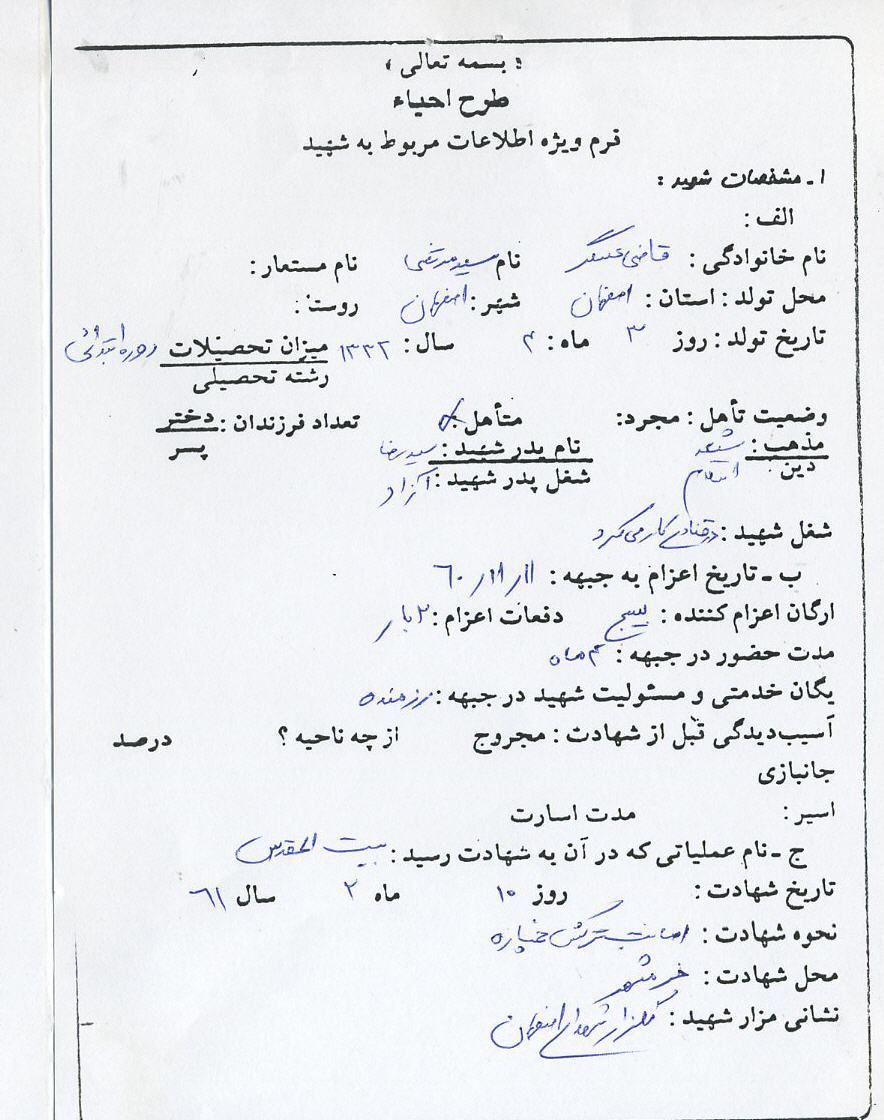 « بسمه تعالی »
طرح احیاء
فرم ویژه اطلاعات مربوط به شهید
۱ـ مشخصات شهید :
الف :
نام خانوادگی : قاضی عسگر نام سید مرتضی نام مستعار :
محل تولد : استان : اصفهان شهر : اصفهان روستا :
تاریخ تولد : روز ۳ ماه : ۴ سال : ۱۳۳۲ میزان تحصیلات دوره ابتدائی
رشته تحصیلی
وضعیت تأهل : مجرد : متأهل : تعداد فرزندان : دختر
پسر
مذهب : شیعه نام پدر شهید : سید رضا
دین : اسلام شغل پدر شهید : آزاد
شغل شهید : در قنادی کار می کرد
ب ـ تاریخ اعزام به جبهه : ۶۰/۱۱/۱۱
ارگان اعزام کننده : بسیج دفعات اعزام : ۲ بار
مدت حضور در جبهه : ۴ ماه
یگان خدمتی و مسئولیت شهید در جبهه : رزمنده
آسیب‌دیدگی قبل از شهادت : مجروح از چه ناحیه ؟ درصد
جانبازی
اسیر : مدت اسارت
ج ـ نام عملیاتی که در آن به شهادت رسید : بیت المقدس
تاریخ شهادت : روز ۱۰ ماه ۲ سال ۶۱
نحوه شهادت : اصابت ترکش خمپاره
محل شهادت : خرمشهر
نشانی مزار شهید : گلزار شهدای اصفهان